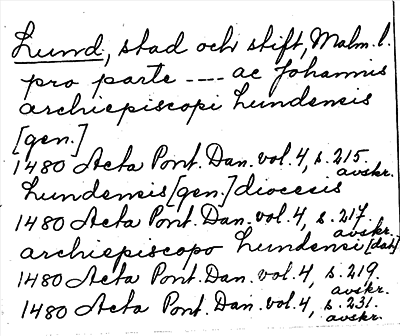 Lund, stad och stift, Malm. l.
pro parte ---- ac Johannis
archiepiscopi Lundensis
[gen.]
1480 Acta Pont. Dan. vol. 4, s. 215.
avskr.
Lundensis [gen.] diocesis
1480 Acta Pont. Dan. vol. 4, s. 217.
avskr.
archiepiscopo Lundensi [dat.]
1480 Acta Pont. Dan. vol. 4, s. 219.
avskr.
1480 Acta Pont. Dan. vol. 4, s. 231.
avskr.